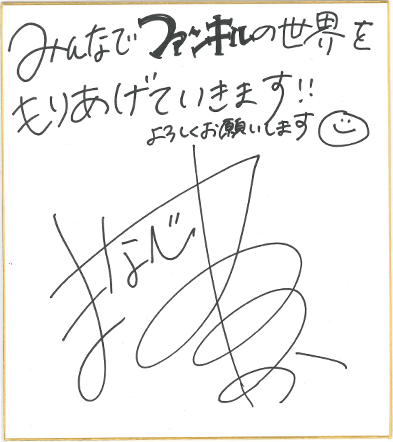 みんなでファンキルの世界を
もりあげていきます!!
よろしくお願いします